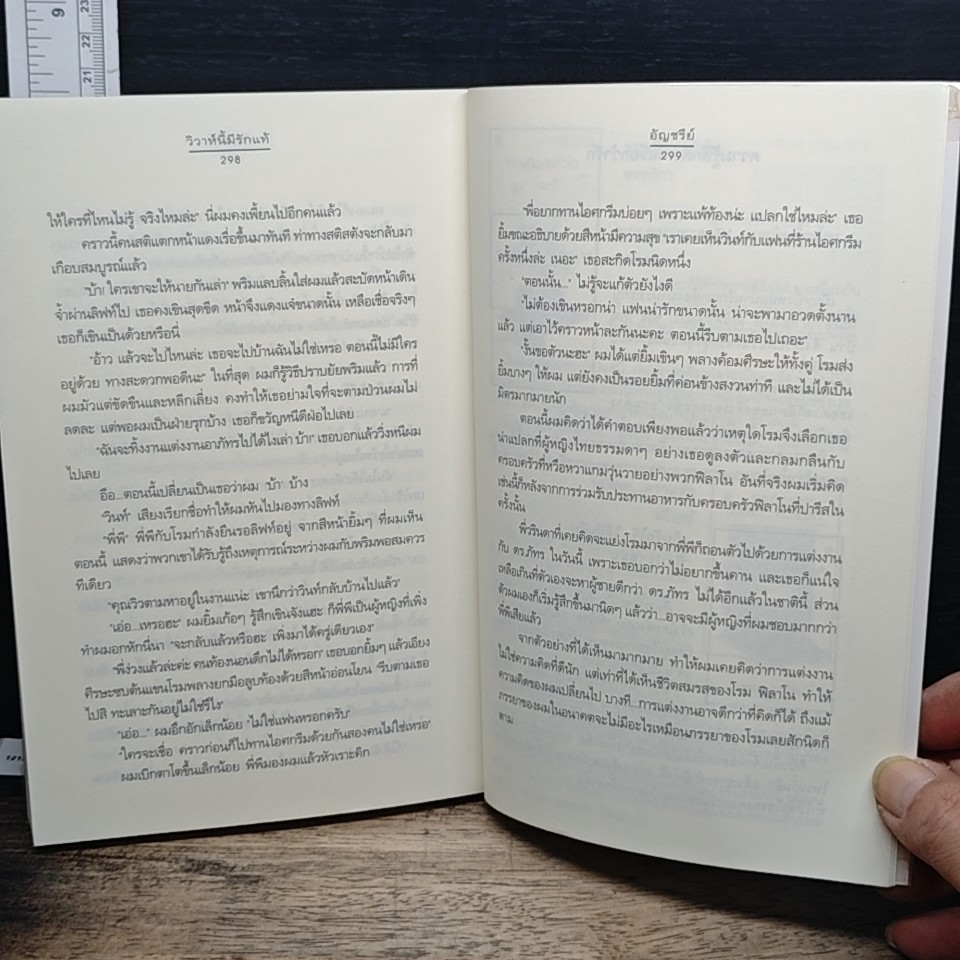 9
23
22
21
วิวาห์นี้มีรักแท้
298
ให้ใครที่ไหนไม่รู้ จริงไหมล่ะ" นี่ผมคงเพี้ยนไปอีกคนแล้ว
คราวนี้คนสติแตกหน้าแดงเรื่อขึ้นมาทันที ท่าทางสติสตังจะกลับมา
เกือบสมบูรณ์แล้ว
"บ้า! ใครเขาจะให้นายกันเล่า" พริมแลบลิ้นใส่ผมแล้วสะบัดหน้าเดิน
จ้ำผ่านลิฟท์ไป เธอคงเขินสุดขีด หน้าจึงแดงแจ๋ขนาดนั้น เหลือเชื่อจริงๆ
เธอก็เขินเป็นด้วยหรือนี่
"อ้าว แล้วจะไปไหนล่ะ เธอจะไปบ้านฉันไม่ใช่เหรอ ตอนนี้ไม่มีใคร
อยู่ด้วย ทางสะดวกพอดีนะ" ในที่สุด ผมก็รู้วิธีปราบยัยพริมแล้ว การที่
ผมมัวแต่ขัดขืนและหลีกเลี่ยง คงทำให้เธอย่ามใจที่จะตามป่วนผมไม่
ลดละ แต่พอผมเป็นฝ่ายรุกบ้าง เธอก็ขวัญหนีดีฝ่อไปเลย
"ฉันจะทิ้งงานแต่งงานอาภัทรไปได้ไงเล่า บ้า!" เธอบอกแล้ววิ่งหนีผม
ไปเลย
อือ...ตอนนี้เปลี่ยนเป็นเธอว่าผม 'บ้า' บ้าง
"วินท์" เสียงเรียกชื่อทำให้ผมหันไปมองทางลิฟท์
"พี่พี" พี่พีกับโรมกำลังยืนรอลิฟท์อยู่ จากสีหน้ายิ้มๆ ที่ผมเห็น
ตอนนี้ แสดงว่าพวกเขาได้รับรู้ถึงเหตุการณ์ระหว่างผมกับพริมพอสมควร
ทีเดียว
"คุณวิวตามหาอยู่ในงานแน่ะ เขานึกว่าวินท์กลับบ้านไปแล้ว"
"เอ่อ...เหรอฮะ" ผมยิ้มเก้อๆ รู้สึกเขินจังแฮะ ก็พี่พีเป็นผู้หญิงที่เพิ่ง
ทำผมอกหักนี่นา "จะกลับแล้วหรือฮะ เพิ่งมาได้ครู่เดียวเอง"
"พี่ง่วงแล้วล่ะค่ะ คนท้องนอนดึกไม่ได้หรอก" เธอบอกยิ้มๆ แล้วเอียง
ศีรษะซบต้นแขนโรมพลางยกมือลูบท้องด้วยสีหน้าอ่อนโยน "รีบตามเธอ
ไปสิ ทะเลาะกันอยู่ไม่ใช่รึไง"
"เอ่อ..." ผมอึกอักเล็กน้อย "ไม่ใช่แฟนหรอกครับ"
"ใครจะเชื่อ คราวก่อนก็ไปทานไอศกรีมด้วยกันสองคนไม่ใช่เหรอ"
ผมเบิกตาโตขึ้นเล็กน้อย พี่พีมองผมแล้วหัวเราะคิก
อัญชรีย์
299
"พี่อยากทานไอศกรีมบ่อยๆ เพราะแพ้ท้องน่ะ แปลกใช่ไหมล่ะ" เธอ
ยิ้มขณะอธิบายด้วยสีหน้ามีความสุข "เราเคยเห็นวินท์กับแฟนที่ร้านไอศกรีม
ครั้งหนึ่งล่ะ เนอะ" เธอสะกิดโรมนิดหนึ่ง
"ตอนนั้น..." ไม่รู้จะแก้ตัวยังไงดี
"ไม่ต้องเขินหรอกน่า แฟนน่ารักขนาดนั้น น่าจะพามาอวดตั้งนาน
แล้ว แต่เอาไว้คราวหน้าละกันนะคะ ตอนนี้รีบตามเธอไปเถอะ"
"งั้นขอตัวนะฮะ" ผมได้แต่ยิ้มเขินๆ พลางค้อมศีรษะให้ทั้งคู่ โรมส่ง
ยิ้มบางๆ ให้ผม แต่ยังคงเป็นรอยยิ้มที่ค่อนข้างสงวนท่าที และไม่ได้เป็น
มิตรมากมายนัก
ตอนนี้ผมคิดว่าได้คำตอบเพียงพอแล้วว่าเหตุใดโรมจึงเลือกเธอ
น่าแปลกที่ผู้หญิงไทยธรรมดาๆ อย่างเธอดูลงตัวและกลมกลืนกับ
ครอบครัวที่หรือหวาแกมวุ่นวายอย่างพวกฟิลาโน อันที่จริงผมเริ่มคิด
เช่นนี้ก็หลังจากการร่วมรับประทานอาหารกับครอบครัวฟิลาโนที่ปารีสใน
ครั้งนั้น
พี่วรินดาที่เคยคิดจะแย่งโรมมาจากพี่พีก็ถอนตัวไปด้วยการแต่งงาน
กับ ดร.ภัทร ในวันนี้ เพราะเธอบอกว่าไม่อยากขึ้นคาน และเธอก็แน่ใจ
เหลือเกินที่ตัวเองจะหาผู้ชายดีกว่า ดร.ภัทร ไม่ได้อีกแล้วในชาตินี้ ส่วน
ตัวผมเองก็เริ่มรู้สึกขึ้นมานิดๆ แล้วว่า...อาจจะมีผู้หญิงที่ผมชอบมากกว่า
พี่พีเสียแล้ว
จากตัวอย่างที่ได้เห็นมามากมาย ทำให้ผมเคยคิดว่าการแต่งงาน
ไม่ใช่ความคิดที่ดีนัก แต่เท่าที่ได้เห็นชีวิตสมรสของโรม ฟิลาโน ทำให้
ความคิดของผมเปลี่ยนไป บางที...การแต่งงานอาจดีกว่าที่คิดก็ได้ ถึงแม้
ภรรยาของผมในอนาคตจะไม่มีอะไรเหมือนภรรยาของโรมเลยสักนิดก็
ตาม